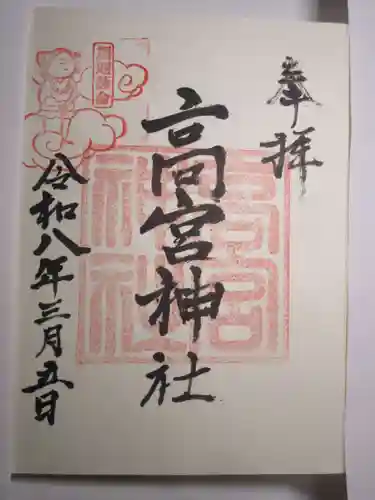 奉拝
高宮神社
高宮神社
令和八年三月五日